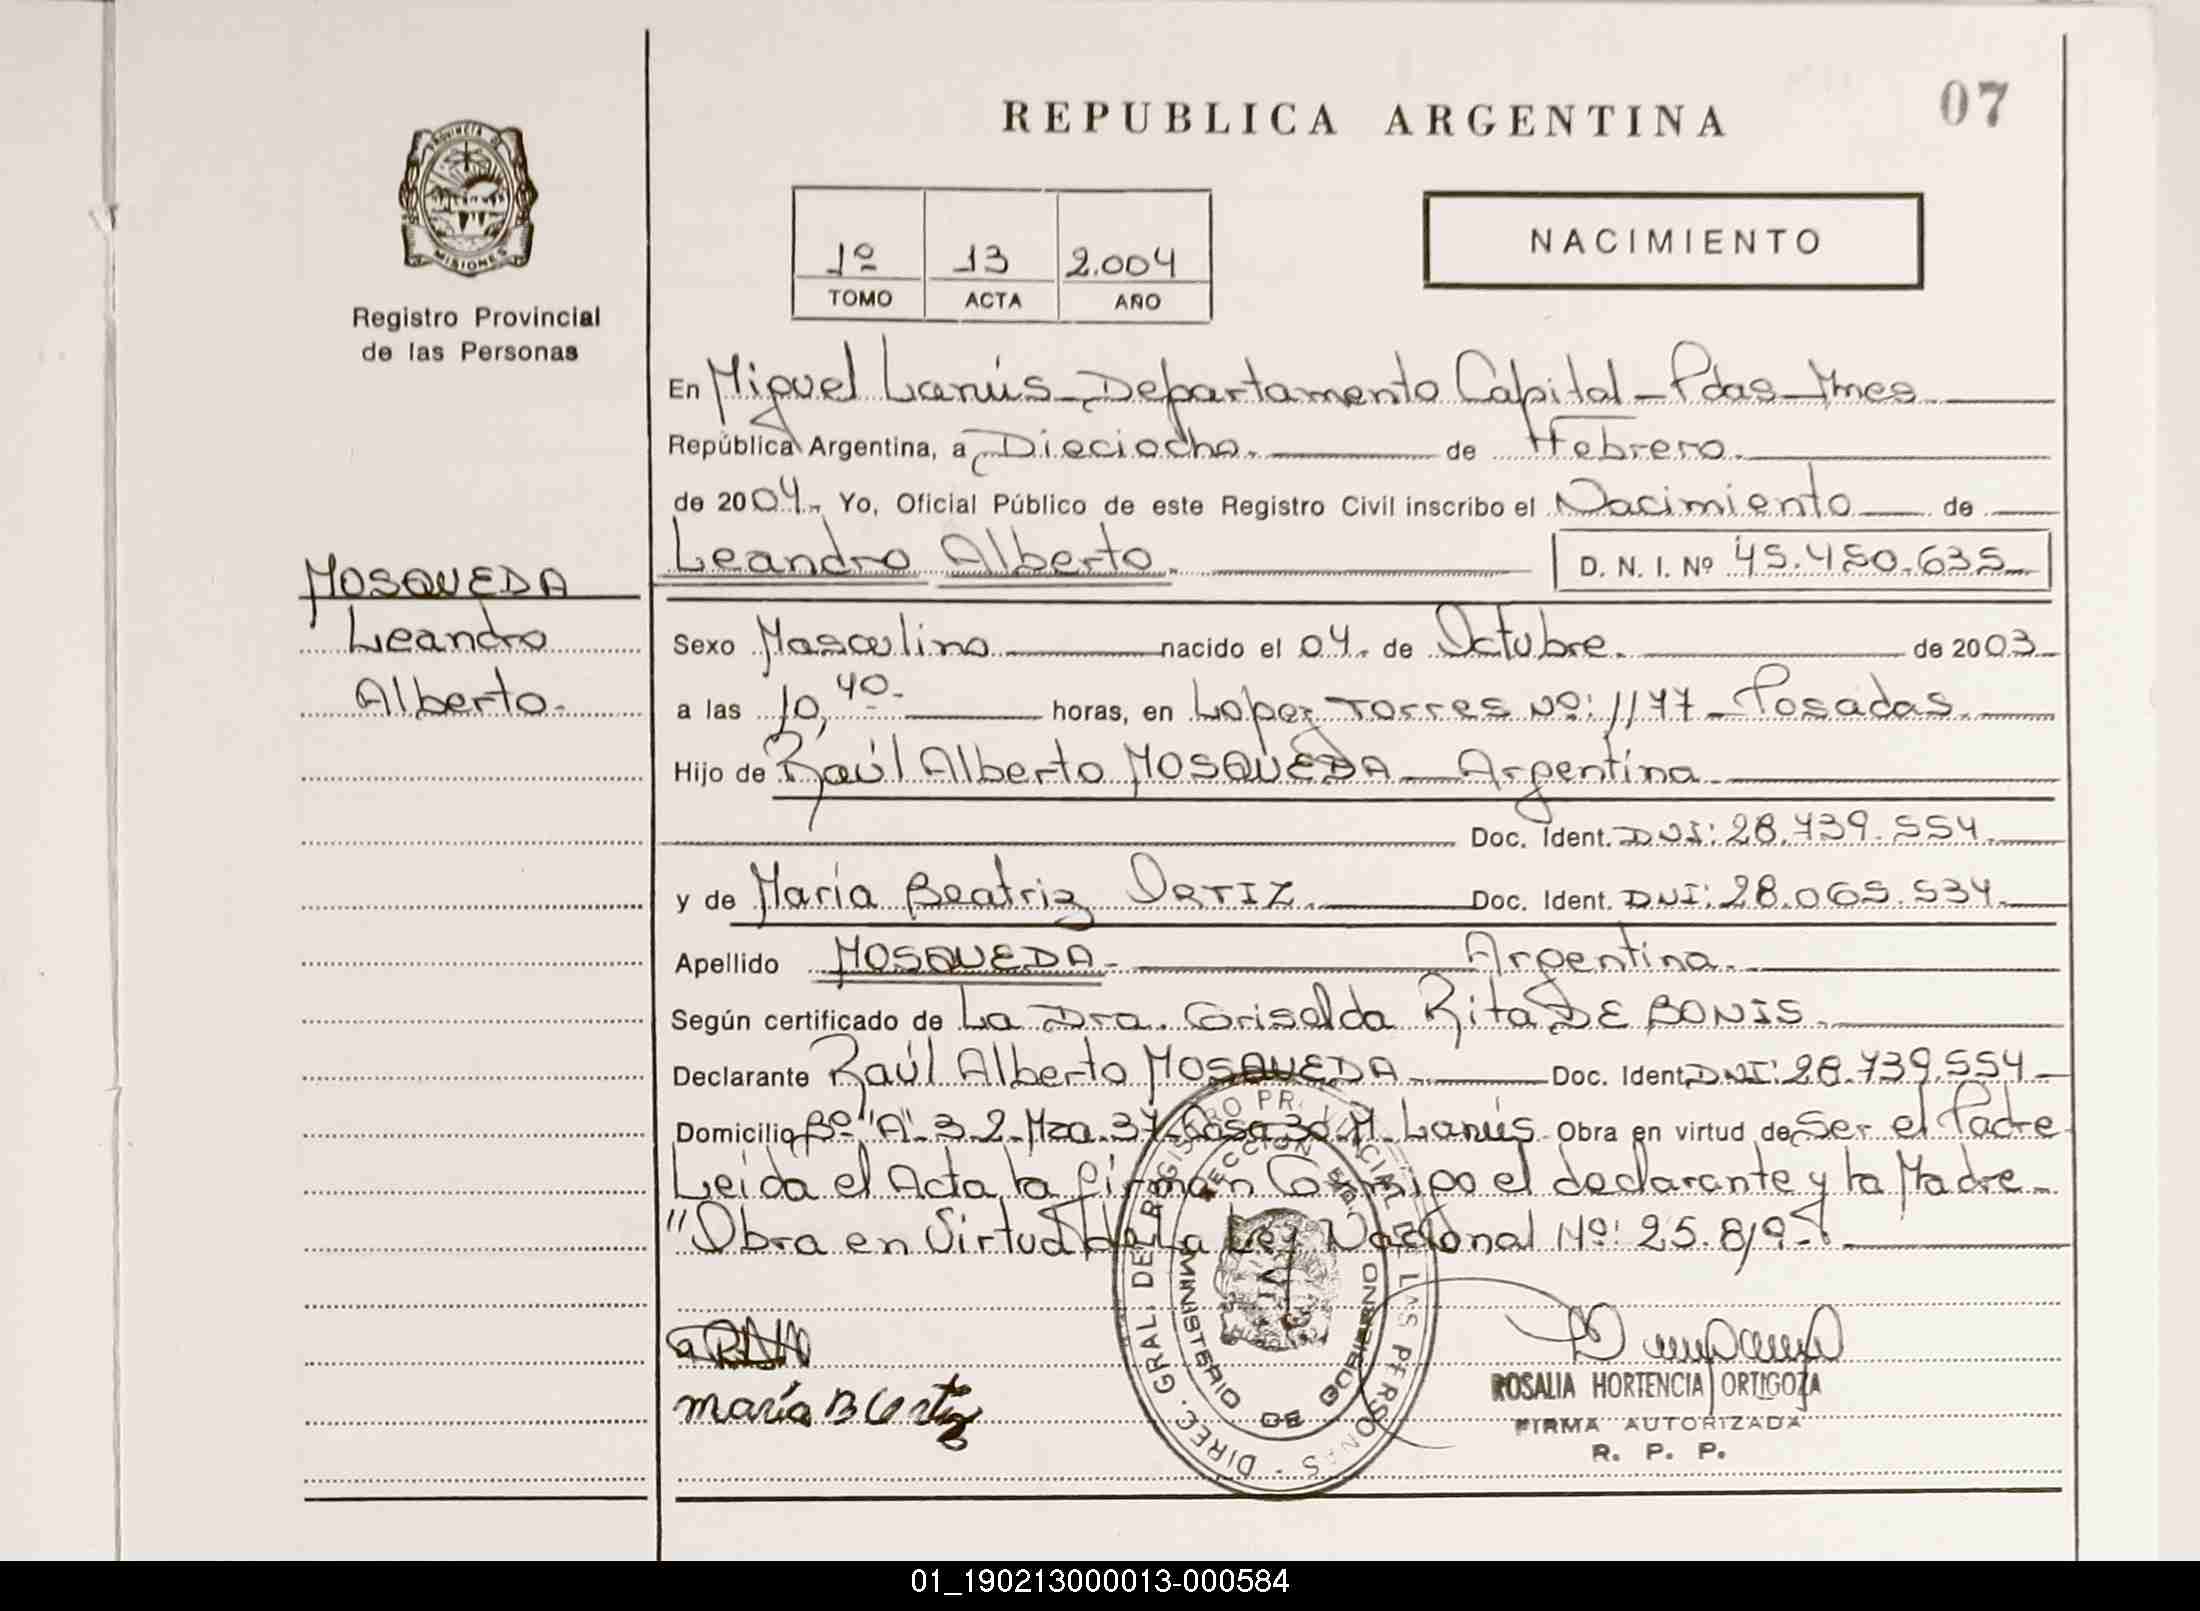 REPUBLICA ARGENTINA
07
PROVINCIA DE
MISIONES
Registro Provincial
de las Personas
1º 13 2.004
TOMO ACTA AÑO
NACIMIENTO
En Miguel Lanús - Departamento Capital - Pdas - Mnes
República Argentina, a Dieciocho. de Febrero.
de 2004. Yo, Oficial Público de este Registro Civil inscribo el Nacimiento de
Leandro Alberto. D. N. I. Nº 45.450.635
MOSQUEDA
Leandro
Alberto.
Sexo Masculino nacido el 04. de Octubre. de 2003
a las 10,40. horas, en Lopez Torres Nº: 1177 - Posadas.
Hijo de Raúl Alberto MOSQUEDA - Argentina
Doc. Ident. DNI: 28.739.554.
y de María Beatriz ORTIZ. Doc. Ident. DNI: 28.065.534.
Apellido MOSQUEDA - Argentina.
Según certificado de La Dra. Griselda Rita DE BONIS.
Declarante Raúl Alberto MOSQUEDA Doc. Ident. DNI: 28.739.554
Domicilio Bº "A" 3-2 Mza 37 Casa 30 M. Lanús. Obra en virtud de Ser el Padre
Leida el Acta la firman Conmigo el declarante y la Madre
"Obra en Virtud de la Ley Nacional Nº: 25.819
DIREC. GRAL. DEL REGISTRO PROVINCIAL DE LAS PERSONAS
MINISTERIO DE GOBIERNO
maría B Ortiz
ROSALIA HORTENCIA ORTIGOZA
FIRMA AUTORIZADA
R. P. P.
01_190213000013-000584